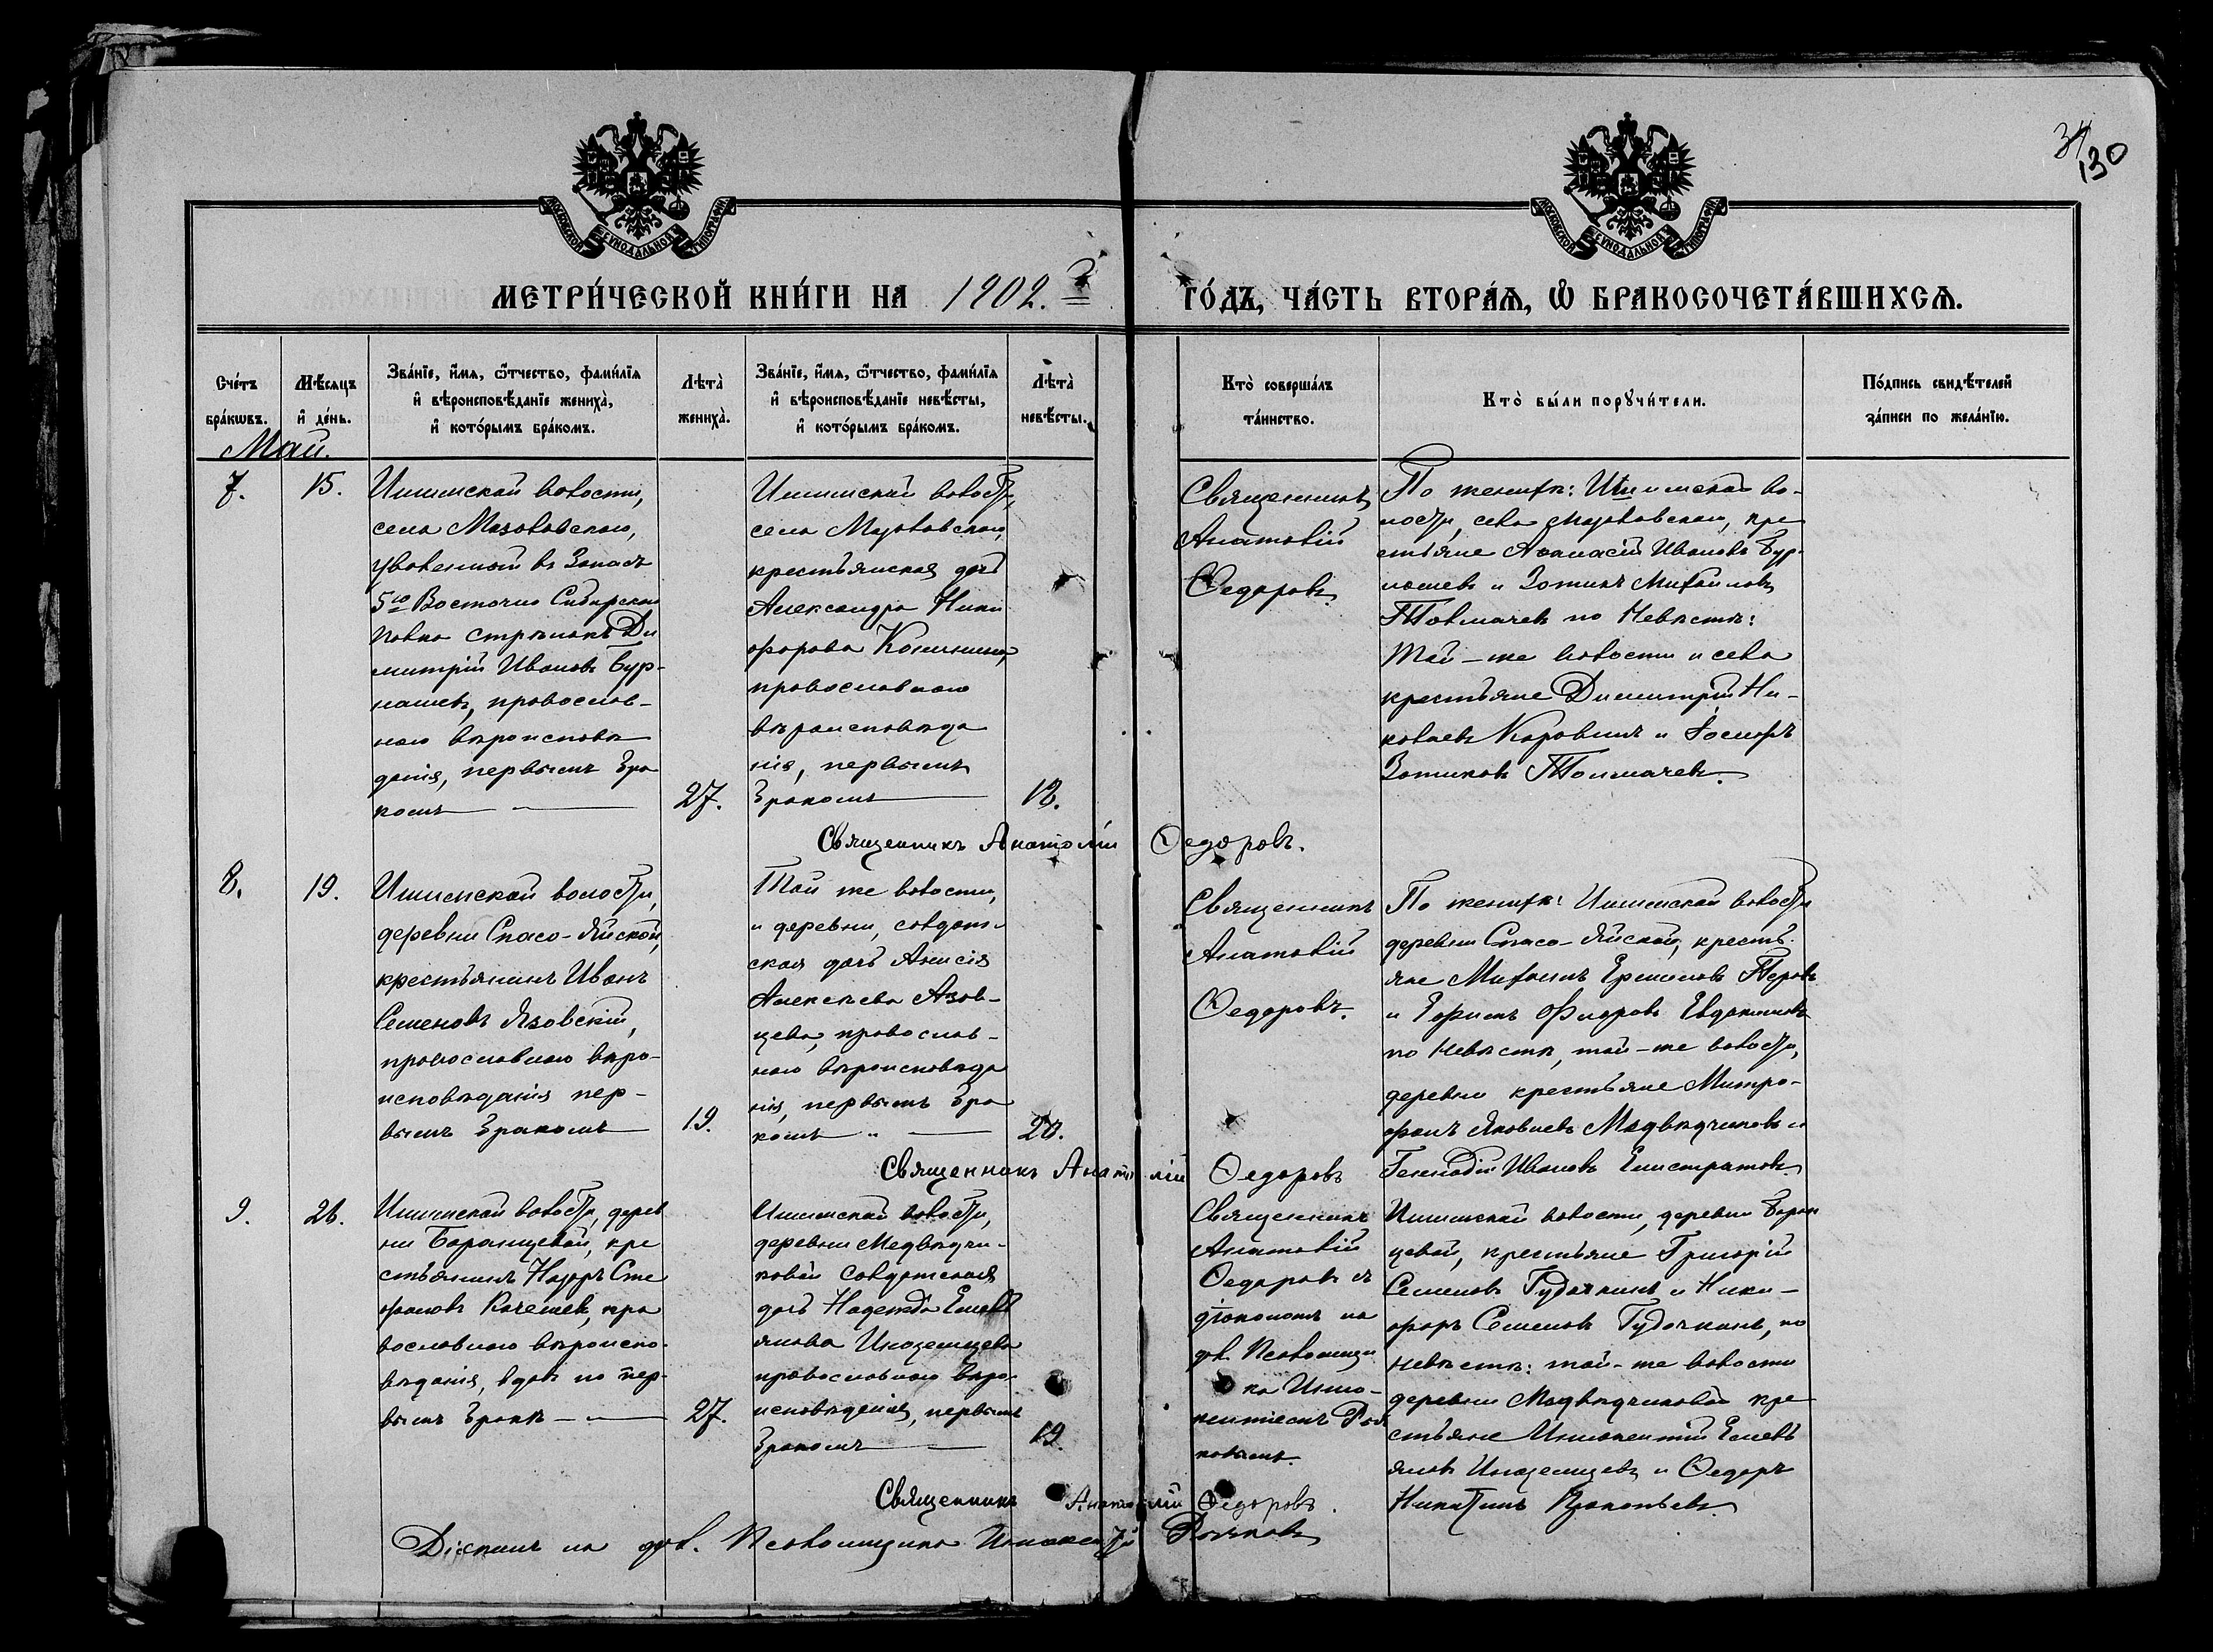 34
130
МОСКОВСКОЙ СѴНОДАЛЬНОЙ ТИПОГРАФІИ
МОСКОВСКОЙ СѴНОДАЛЬНОЙ ТИПОГРАФІИ
МЕТРИ́ЧЕСКОЙ КНИ́ГИ НА 1902.
ГО́ДЪ, ЧА́СТЬ ВТОРА́Я, Ѡ БРАКОСОЧЕТА́ВШИХСѦ.
Сче́тъ бра́кѡвъ.
Мѣ́сяцъ и҆ де́нь.
Зва́нїе, и҆́мѧ, ѻ҆́тчество, фами́лїѧ
и҆ вѣроисповѣ́данїе жениха̀,
и҆ кото́рымъ бра́комъ.
Лѣта̀
жениха̀.
Зва́нїе, и҆́мѧ, ѻ҆́тчество, фами́лїѧ
и҆ вѣроисповѣ́данїе невѣ́сты,
и҆ кото́рымъ бра́комъ.
Лѣта̀
невѣ́сты.
Кто̀ соверша́лъ
та́инство.
Кто̀ бы́ли порꙋчи́тели.
По́дпись свидѣ́телей
за́писи по жела́нїю.
Май.
7.
15.
Ишимской волости,
села Мазаловскаго,
уволенный въ Запасъ
5го Восточно Сибирскаго
полка стрѣлокъ Ди
митрій Ивановъ Бур-
нашевъ, православ-
наго вѣроисповѣ
данія, первымъ бра
комъ
27.
Ишимской волости,
села Мазаловскаго,
крестьянская дочь
Александра Ники
форова Конинина,
православнаго
вѣроисповѣда
нія, первымъ
бракомъ
18.
Священникъ
Анатолій
Ѳедоровъ.
По женихѣ: Ишимской во-
лости, села Мазаловскаго, кре
стьяне Аѳанасій Ивановъ Бур-
нашевъ и Зотикъ Михайловъ
Толмачевъ по Невѣстѣ:
Той-же волости и села
крестьяне Димитрій Ни-
колаевъ Коровинъ и Іосифъ
Зотиковъ Толмачевъ.
Священникъ Анатолій Ѳедоровъ.
8.
19.
Ишимской волости,
деревни Спасо-Яйской,
крестьянинъ Иванъ
Семеновъ Язовскій,
православнаго вѣро-
исповѣданія пер-
вымъ бракомъ
19.
Той же волости,
и деревни, солдат-
ская дочь Анисія
Алексѣева Азов-
цева, православ-
наго вѣроисповѣда
нія, первымъ бра
комъ
20.
Священникъ
Анатолій
Ѳедоровъ.
По женихѣ: Ишимской волости
деревни Спасо-Яйской, кресть-
яне Михаилъ Ермиловъ Перовъ
и Ефимъ Флоровъ Евдокимовъ
по невѣстѣ, той-же волости,
деревни крестьяне Митро-
фанъ Яковлевъ Медвѣдчиковъ и
Геннадій Ивановъ Елистратовъ.
Священникъ Анатолій Ѳедоровъ
9.
26.
Ишимской волости, дерев
ни Баранцевой, кре
стьянинъ Назаръ Сте
фановъ Качешевъ, пра
вославнаго вѣроиспо-
вѣданія, вдовъ по пер-
вымъ бракѣ
27.
Ишимской волости,
деревни Медвѣдчи-
ковой солдатская
дочь Надежда Емель
янова Иноземцева
православнаго вѣро-
исповѣданія, первымъ
бракомъ
19.
Священникъ
Анатолій
Ѳедоровъ съ
діакономъ на
дол. Псаломщи
ка Инно-
кентіемъ
Ишимской волости, деревни Баран
цевой, крестьяне Григорій
Семеновъ Гудочкинъ и Ники-
форъ Семеновъ Гудочкинъ, по
невѣстѣ: той-же волости
деревни Медвѣдчиковой кре
стьяне Иннокентій Емель
яновъ Иноземцевъ и Ѳедоръ
Никитинъ Прокопьевъ.
Священникъ Анатолій Ѳедоровъ.
Діаконъ на дол. Псаломщика Иннокентій